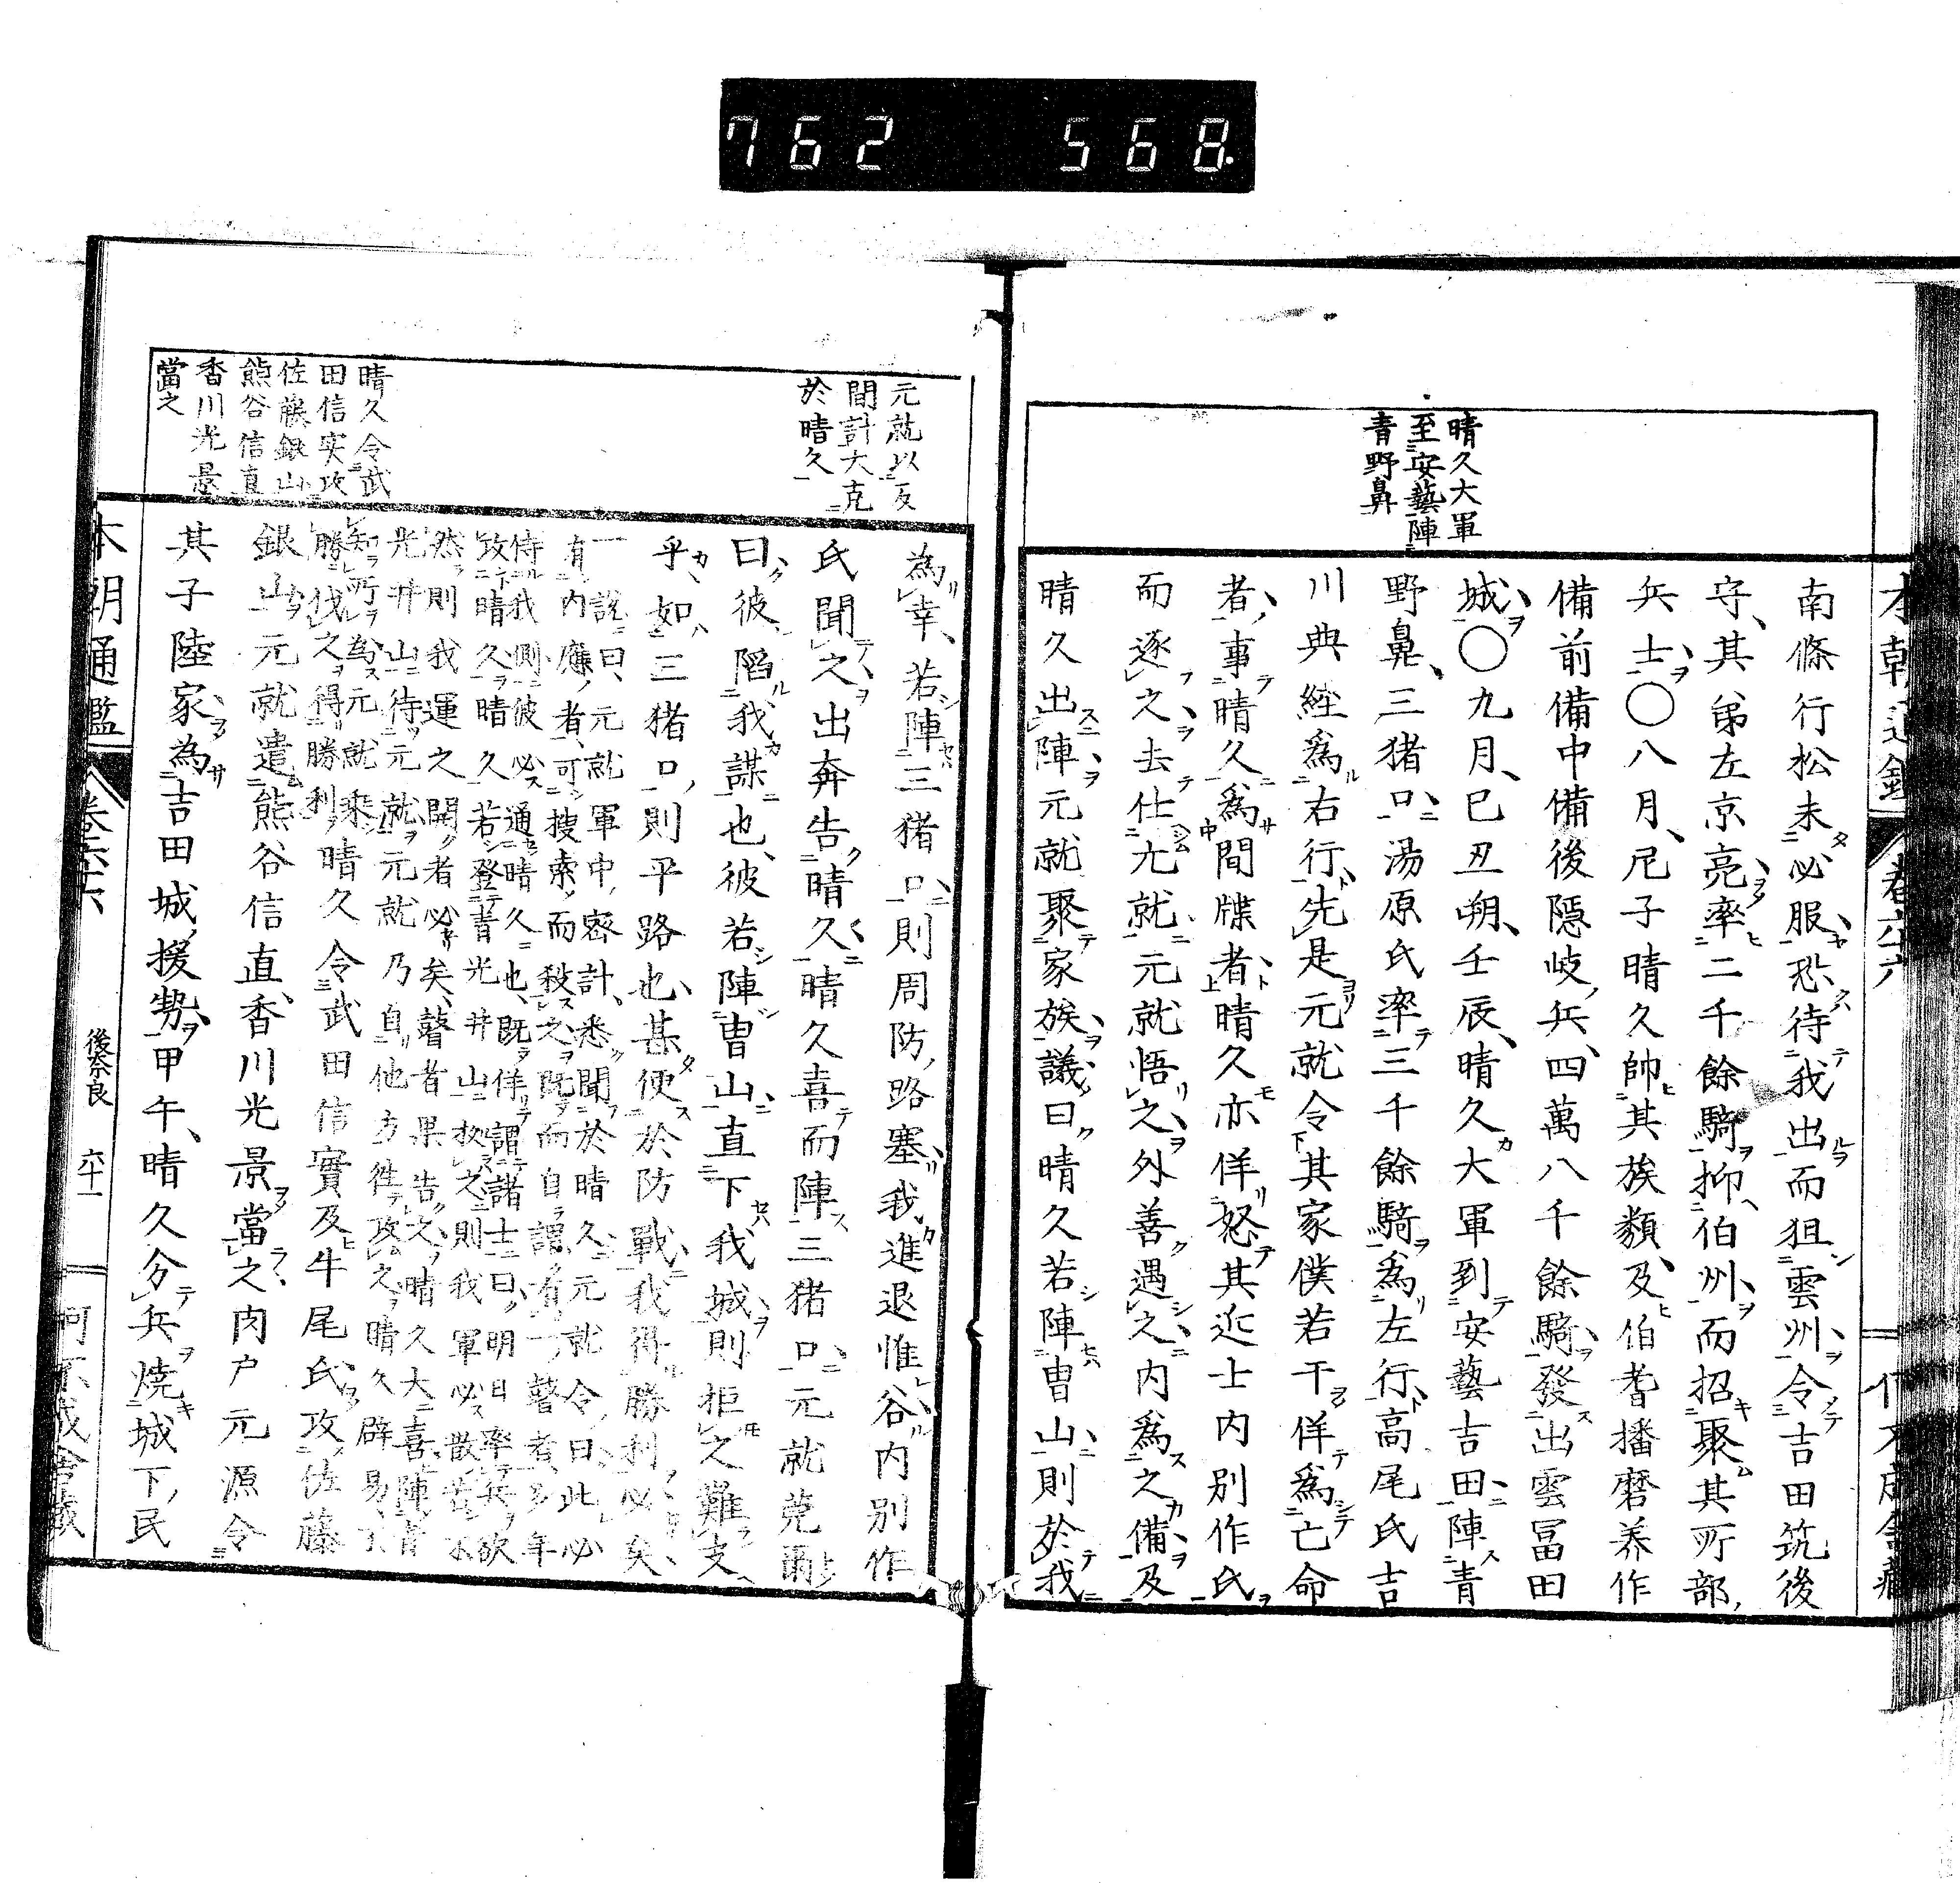 762 568
本朝通鑑 卷六十六
晴久大軍
至安藝陣
青野鼻
南條行松未必服恐待我出而狙雲州令吉田筑後
守其弟左京亮率二千餘騎抑伯州而招聚其所部
兵士○八月尼子晴久帥其族類及伯耆播磨養作
備前備中備後隱岐兵四萬八千餘騎發出雲冨田
城○九月己丑朔壬辰晴久大軍到安藝吉田陣青
野鼻三猪口湯原氏率三千餘騎爲左行高尾氏吉
川典經爲右行先是元就令其家僕若干佯爲亡命
者事晴久爲間牒者晴久亦佯怒其近士内別作氏
而逐之去仕元就元就悟之外善遇之内爲之備及
晴久出陣元就聚家族議曰晴久若陣曽山則於我
元就以反
間計大克
於晴久
為幸若陣三猪口則周防路塞我進退惟谷内別作
氏聞之出奔告晴久晴久喜而陣三猪口元就莞爾
曰彼䧟我謀也彼若陣曽山直下我城則拒之難支
乎如三猪口則平路也甚便於防戰我得勝利必矣
一說曰元就軍中密計悉聞於晴久元就令曰此必
有内應者可搜索而殺之既而自謂有一瞽者多年
侍我側彼必通晴久也既佯謂諸士曰明日率兵欲
攻晴久晴久若登青光井山救之則我軍必散若不
然則我運之開者必矣瞽者果告之晴久大喜陣青
光井山待元就元就乃自他方徃攻之晴久辟易不
知所為元就乘
勝伐之得勝利晴久令武田信實及牛尾氏攻佐藤
銀山元就遣熊谷信直香川光景當之肉戸元源令
其子陸家為吉田城援勢甲午晴久分兵燒城下民
晴久令武
田信実攻
佐藤銀山
熊谷信直
香川光景
當之
本朝通鑑 卷六十六 後奈良 六十一